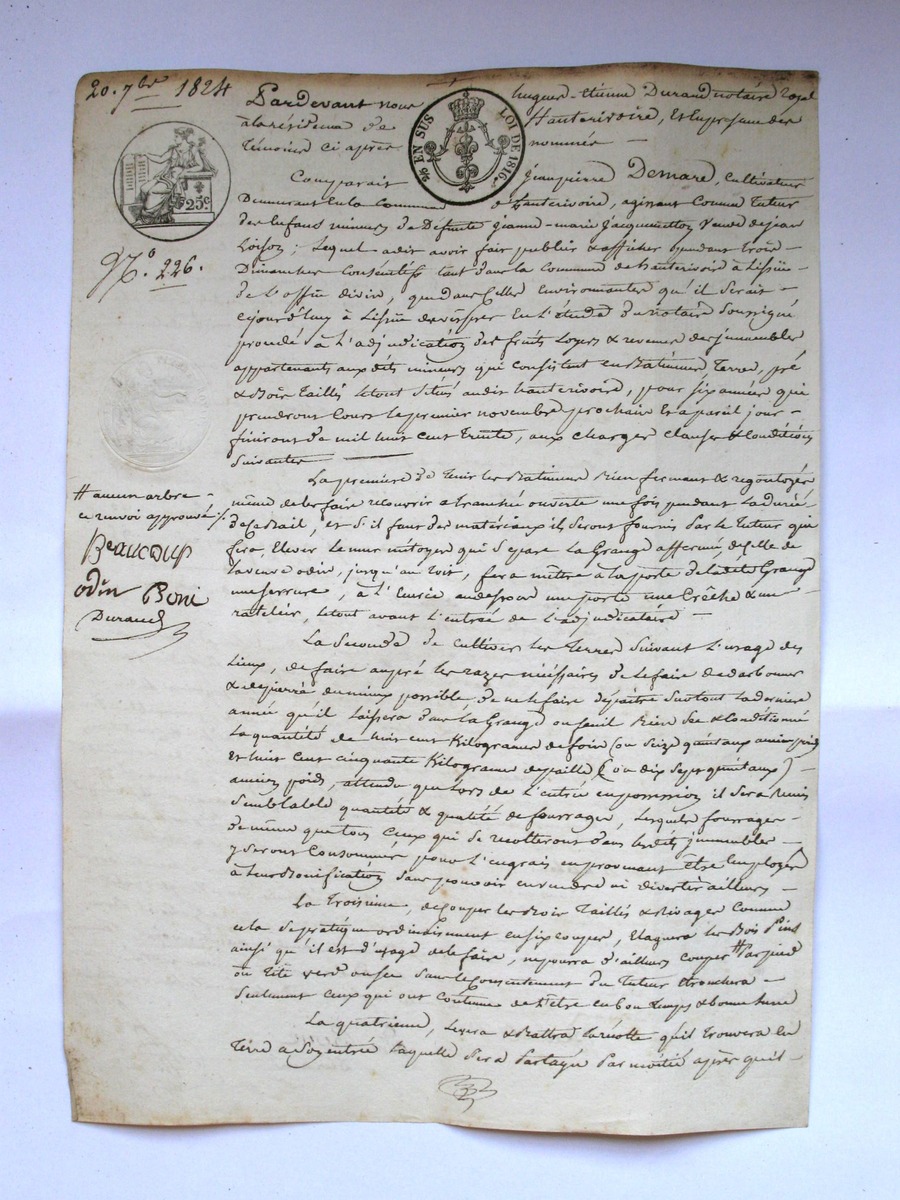 20. 7bre 1824
Pardevant nous hugues-Etienne Durand notaire Royal
à la résidence de hauterivoire, Et en présence des
témoins ci après nommés —
25 EN SUS LOI DE 1816.
25c.
N.o 226.
Comparait Jean pierre Demare, Cultivateur
Demeurant en la Commune d'hauterivoire, agissant Comme Tuteur
des Enfans mineurs de Défunte Jeanne-marie Jacquemetton Veuve de jean
Loison; Lequel a dit avoir fait publier & afficher pendant trois —
Dimanches Consécutifs tant dans la Commune de hauterivoire à L'issüe
de L'office divin, que dans Celles Environnantes qu'il Serait —
Cejourd'huy à L'issüe des vêspres En L'étude du notaire Soussigné
procédé à L'adjudication des fruits Loyers & revenus des immeubles
appartenants aux dits mineurs qui Consistent en Batiments, Terres, pré
& Bois Taillis Le tout Situés audit hauterivoire, pour Six années qui
prendront Cours Le premier novembre prochain Et a pareil jour —
finiront de mil huit Cent Trente, aux charges clauses & Conditions
Suivantes —
La première de Tenir les Batimens Bien fermant & regoutoyés
même de les faire recouvrir a tranchée ouverte une fois pendant La durée
de Ce Bail, et S'il faut des matériaux ils Seront fournis par Le Tuteur qui
fera, Elever Le mur mitoyen qui Sépare La Grange affermée, de Celle de
La veuve odin, jusqu'au toit, fera mettre à La porte de La dite Grange
une Serrure, à L'Ecurie au dessous une porte une Crêche & un
ratelier, Le tout avant L'entrée de L'adjudicataire —
# aucun arbre —
ce renvoi approuvé ./.
Beaucoup
odin Poni
Durand
La Seconde de Cultiver Les terres Suivant L'usage des
Lieux, de faire au pré Les razes nécéssaires de Le faire dedarbonner
& dépierré du mieux possible, de ne Le faire dépaitre Surtout La dernière
année qu'il Laissera dans La Grange ou fenil Bien Sec & Conditionné
La quantité de huit cent Kilogrames de foin (ou Seize quintaux ancien poid)
et huit Cent cinquante Kilogrames de paille (ou dix Sept quintaux) —
ancien poids, attendu que Lors de L'entrée en possession il Sera Remis
Semblable quantité & qualité de fourrages, Lesquels fourrages —
de même que tous Ceux qui Se recolteront dans Lesdits immeubles
y Seront Consommés, pour L'engrais en provenant être Employés
à Leur Bonification Sans pouvoir en vendre ni divertir ailleurs —
La Troisième, de Couper les Bois Taillis & Rivages Comme
Cela Se pratique ordinairement en Six coupes, Elaguera Les Bois Pins
ainsi qu'il est d'usage de Le faire, ne pourra d'ailleurs Couper # Par pied
ou Tête verd ou Sec Sans Le Consentement du Tuteur Etronchera —
Seulement Ceux qui ont Coutume de L'être en bon temps & bonne Lune
La quatrième, Levera & Battra La récolte qu'il trouvera En
Terre a Son entrée Laquelle Sera Partagée Par moitié après qu'il —